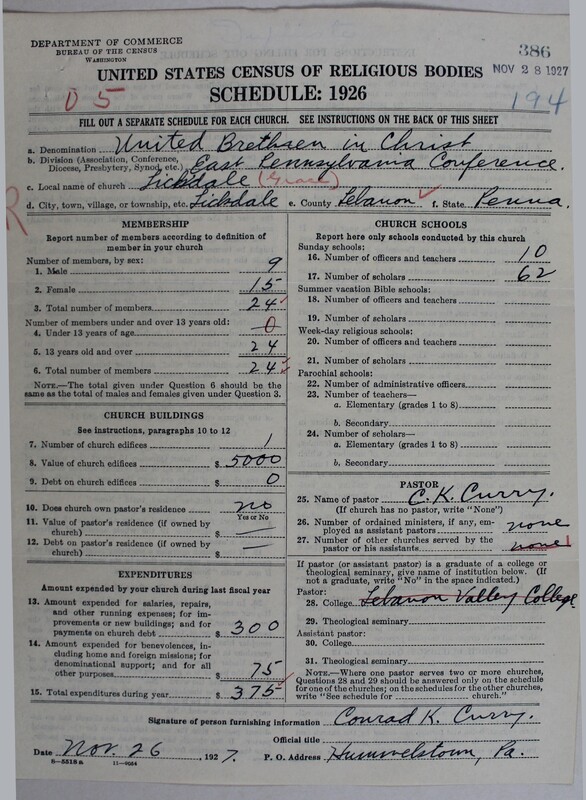 DEPARTMENT OF COMMERCE
BUREAU OF THE CENSUS
WASHINGTON
386
NOV 28 1927
UNITED STATES CENSUS OF RELIGIOUS BODIES
05
SCHEDULE: 1926
194
FILL OUT A SEPARATE SCHEDULE FOR EACH CHURCH. SEE INSTRUCTIONS ON THE BACK OF THIS SHEET
a. Denomination United Brethren in Christ
b. Division (Association, Conference, Diocese, Presbytery, Synod, etc.) East Pennsylvania Conference.
c. Local name of church Lickdale (Grace)
d. City, town, village, or township, etc. Lickdale e. County Lebanon ✓ f. State Penna.
R
MEMBERSHIP
Report number of members according to definition of
member in your church
Number of members, by sex:
1. Male 9
2. Female 15
3. Total number of members 24 ✓
Number of members under and over 13 years old:
4. Under 13 years of age 0
5. 13 years old and over 24
6. Total number of members 24 ✓
NOTE.—The total given under Question 6 should be the
same as the total of males and females given under Question 3.
CHURCH BUILDINGS
See instructions, paragraphs 10 to 12
7. Number of church edifices 1
8. Value of church edifices $ 5000
9. Debt on church edifices $ 0
10. Does church own pastor's residence no
Yes or No
11. Value of pastor's residence (if owned by
church) $ —
12. Debt on pastor's residence (if owned by
church) $ —
EXPENDITURES
Amount expended by your church during last fiscal year
13. Amount expended for salaries, repairs,
and other running expenses; for im-
provements or new buildings; and for
payments on church debt $ 300
14. Amount expended for benevolences, in-
cluding home and foreign missions; for
denominational support; and for all
other purposes $ 75
15. Total expenditures during year $ 375 ✓
CHURCH SCHOOLS
Report here only schools conducted by this church
Sunday schools:
16. Number of officers and teachers 10
17. Number of scholars 62
Summer vacation Bible schools:
18. Number of officers and teachers
19. Number of scholars
Week-day religious schools:
20. Number of officers and teachers
21. Number of scholars
Parochial schools:
22. Number of administrative officers
23. Number of teachers—
a. Elementary (grades 1 to 8)
b. Secondary
24. Number of scholars—
a. Elementary (grades 1 to 8)
b. Secondary
PASTOR
25. Name of pastor C. K. Curry.
(If church has no pastor, write "None")
26. Number of ordained ministers, if any, em-
ployed as assistant pastors none
27. Number of other churches served by the
pastor or his assistants none 1
If pastor (or assistant pastor) is a graduate of a college or
theological seminary, give name of institution below. (If
not a graduate, write "No" in the space indicated.)
Pastor:
28. College Lebanon Valley College
29. Theological seminary
Assistant pastor:
30. College
31. Theological seminary
NOTE.—Where one pastor serves two or more churches,
Questions 28 and 29 should be answered only on the schedule
for one of the churches; on the schedules for the other churches,
write "See schedule for church."
Signature of person furnishing information Conrad K. Curry.
Official title
Date Nov. 26, 1927. P. O. Address Hummelstown, Pa.
8-5518a 11-9064